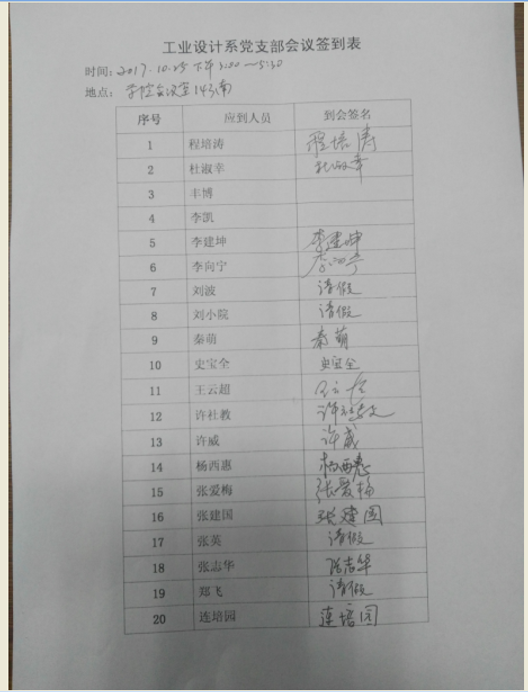 工业设计系党支部会议签到表
时间:2017.10.25 下午 3:00~5:30
地点: 学院会议室143南
序号 应到人员 到会签名
1 程培涛 程培涛
2 杜淑幸 杜淑幸
3 丰博
4 李凯
5 李建坤 李建坤
6 李向宁 李向宁
7 刘波 请假
8 刘小院 请假
9 秦萌 秦萌
10 史宝全 史宝全
11 王云超
12 许社教 许社教
13 许威 许威
14 杨西惠 杨西惠
15 张爱梅 张爱梅
16 张建国 张建国
17 张英 请假
18 张志华 张志华
19 郑飞 请假
20 连培园 连培园